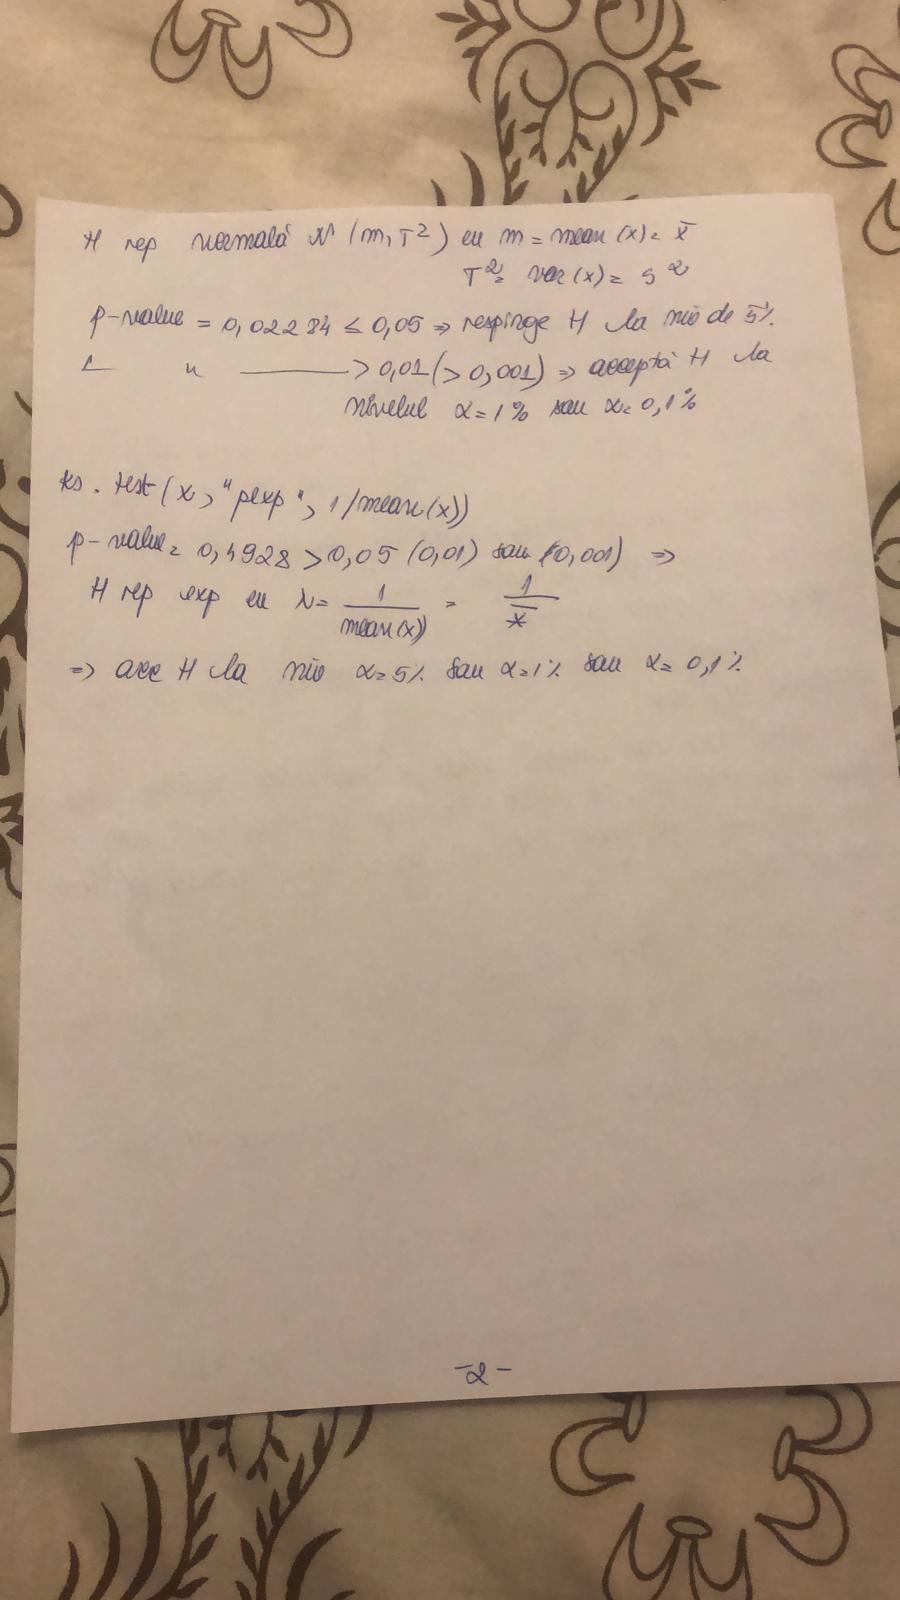 H rep normală N (m, T²) cu m = mean (x) = x̄
T² = var (x) = s²
p-value = 0,02284 ≤ 0,05 => respinge H la niv de 5%
— " ——— > 0,01 (> 0,001) => acceptă H la
nivelul α = 1% sau α = 0,1%
ks. test (x, "pexp", 1/mean(x))
p-value = 0,4928 > 0,05 (0,01) sau (0,001) =>
H rep exp cu λ = 1/mean(x) = 1/x̄
=> acc H la niv α = 5% sau α = 1% sau α = 0,1%
-2-